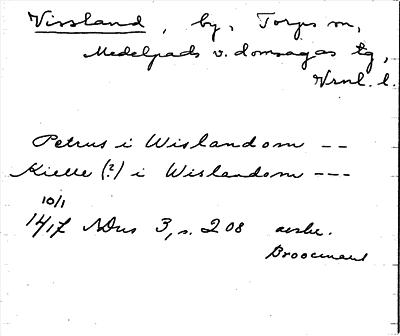 Vissland, by, Torps sn,
Medelpads v. domsagas tg,
Vrnl. l.
Petrus i Wislandom --
Kielle (?) i Wislandom ---
10/1
1417 NDns 3, s. 208 avskr.
Broocman